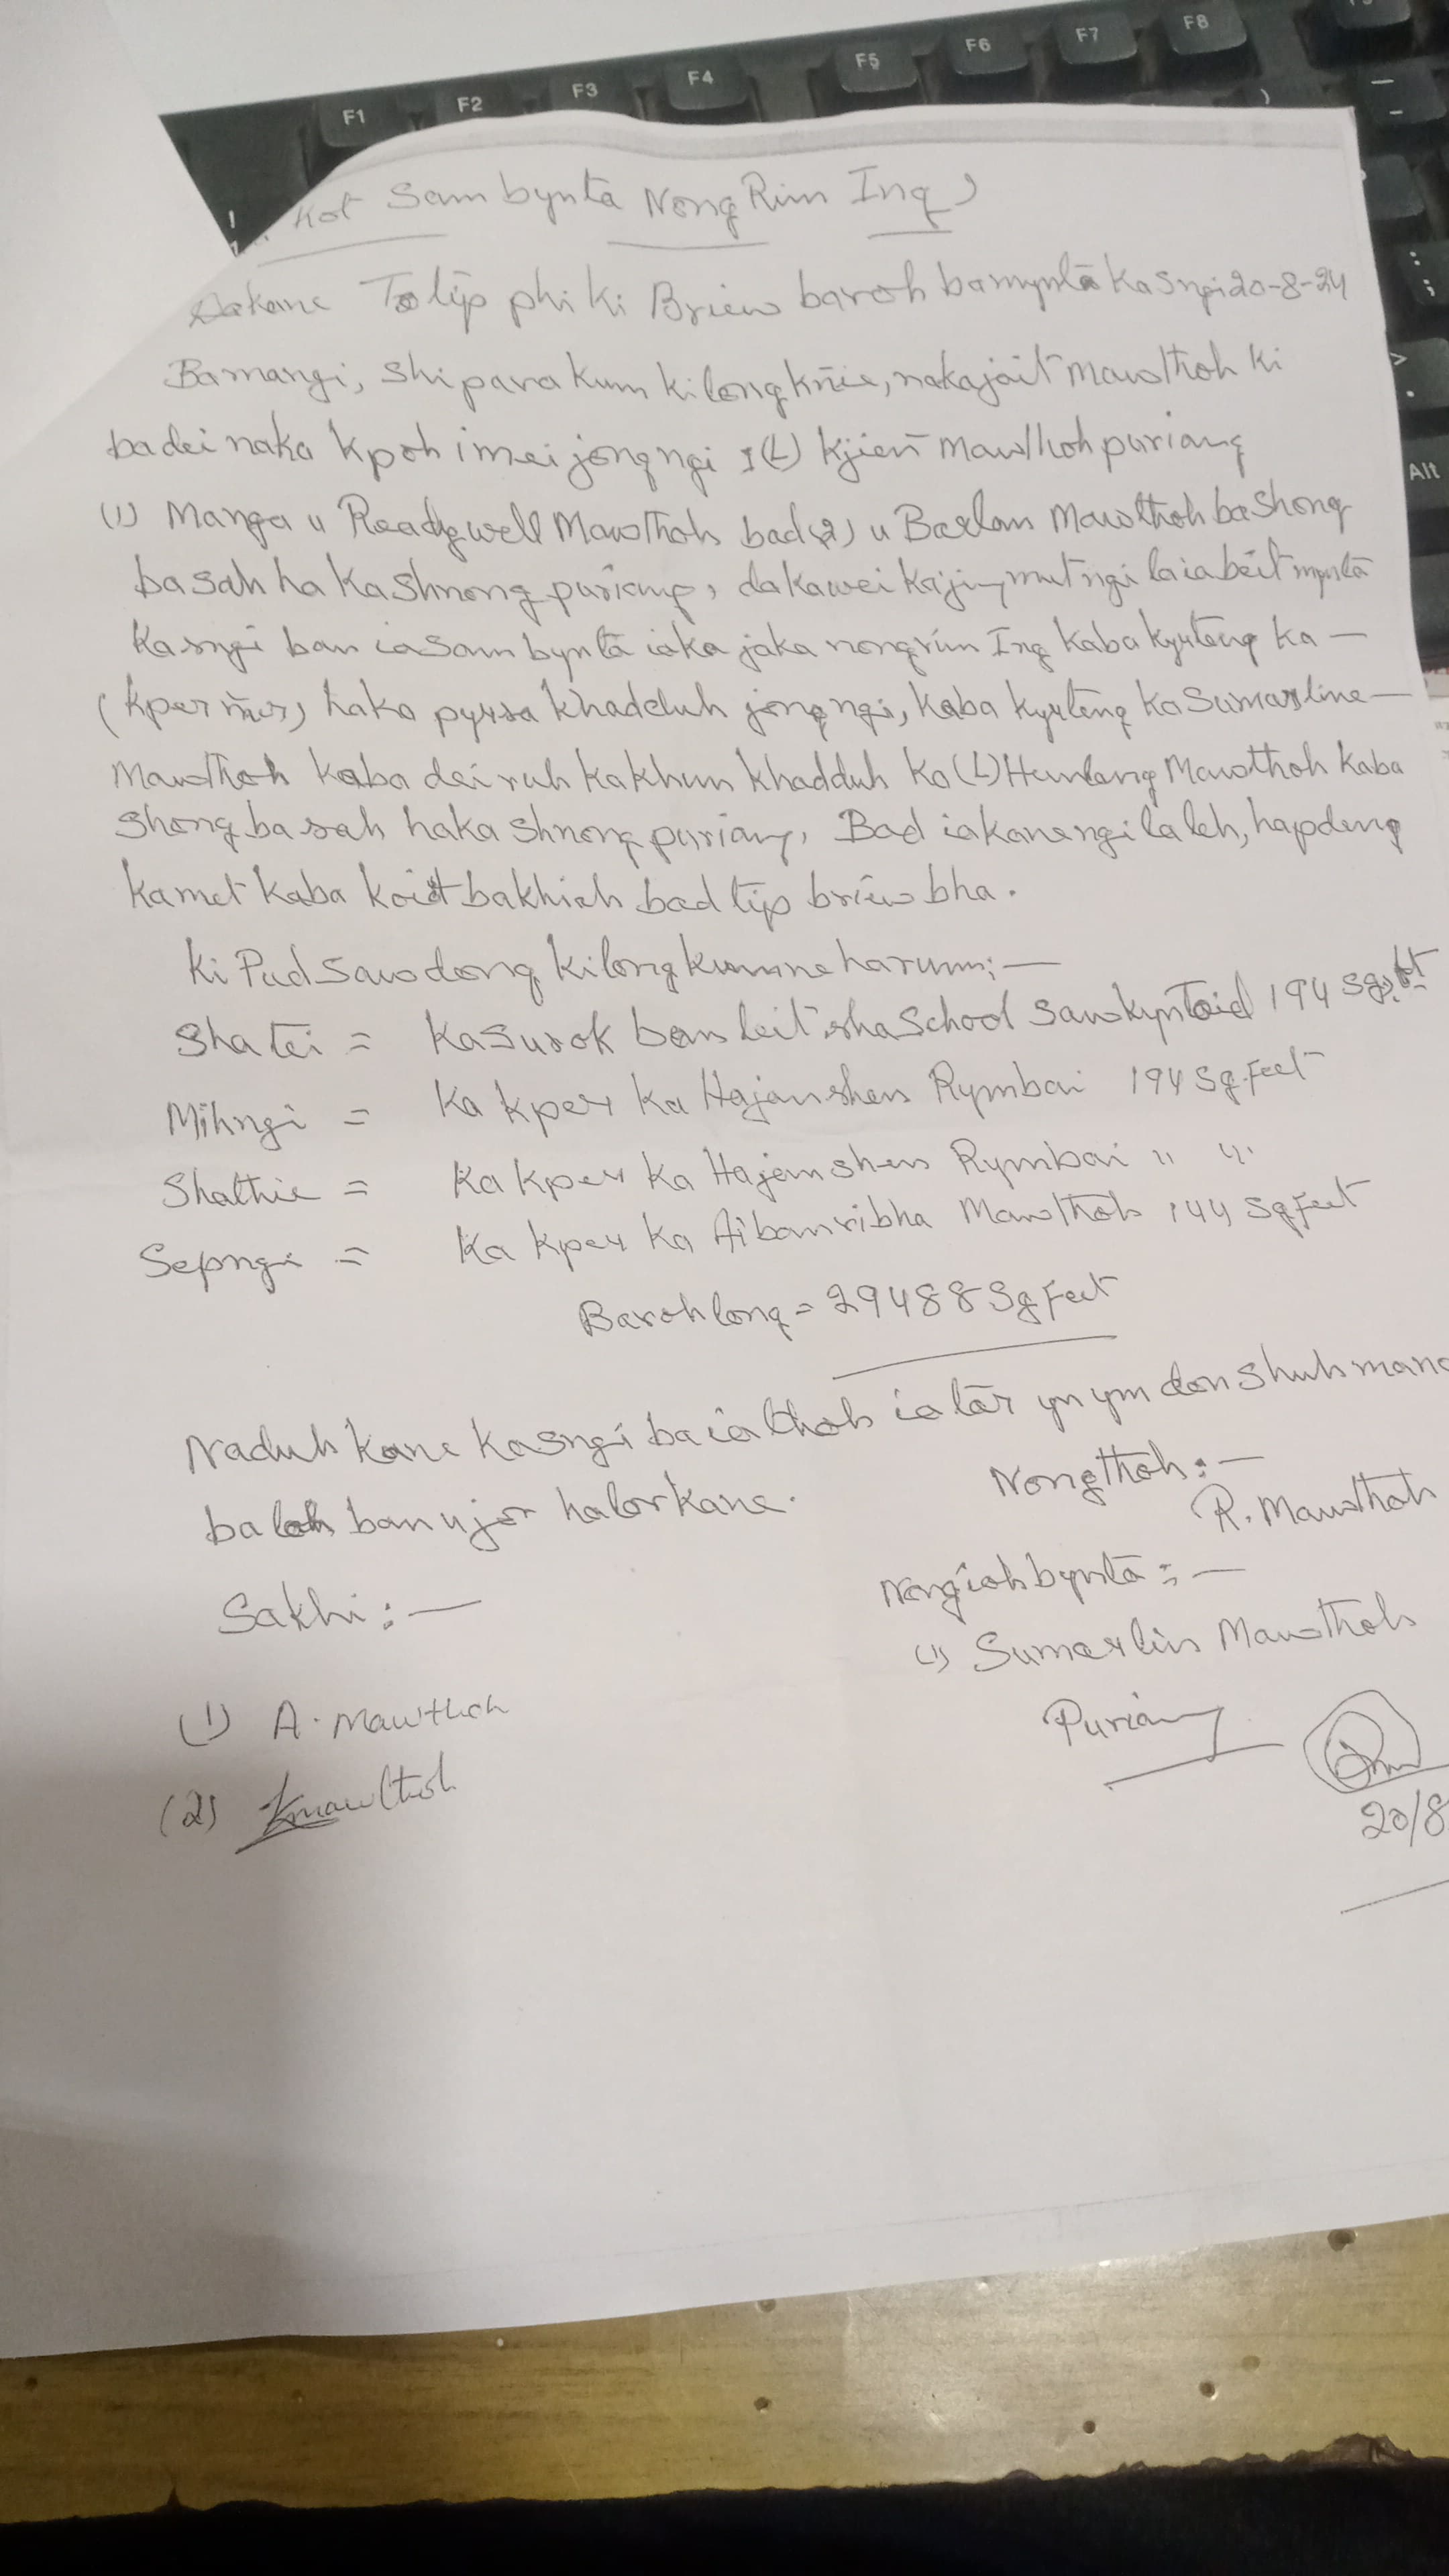 Kot Sam bynta Nong Rim Ing
Dakane To tip phi ki Briew baroh bamynta Ka sngi 20-8-24
Bamangi, shi para kum ki longkñie, naka jait Mawthoh ki
badei naka kpoh i mei jong ngi I (L) Kjien Mawthoh puriang
(1) Manga u Readgwell Mawthoh bad (2) u Barlam Mawthoh ba shong
basah ha Ka shnong puriang, da kawei Ka jingmut ngi la ia beit mynta
Ka sngi ban ia sam bynta ia ka jaka nongrim Ing Kaba kyrteng ka —
(kper), haka pyrsa khadduh jong ngi, Kaba kyrteng Ka Sumarline —
Mawthoh kaba dei ruh ka khun khadduh Ka (L) Hunlang Mawthoh Kaba
Shong ba sah haka Shnong puriang, Bad ia kane ngi la leh, hapdeng
kamet kaba koit bakhiah bad tip briew bha.
Ki Pud sawdong ki long kumne harum:—
Shatei = Ka surok ban leit sha School Sawkyntoid 194 sq.ft
Mihngi = Ka kper ka Hajanshen Rymbai 194 sq.Feet
Shathie = Ka kper ka Hajanshen Rymbai " "
Sepngi = Ka kper ka Aibanribha Mawthoh 144 sq Feet
Baroh long = 29488 sq Feet
Naduh kane ka sngi ba ia thoh ia tar yn ym don shuh mano
ba lah ban ujor halor kane.
Nongthoh:—
R. Mawthoh
Nongioh bynta:—
(1) Sumarlin Mawthoh
Puriang
20/8
Sakhi:—
(1) A. Mawthoh
(2) Kmawthoh